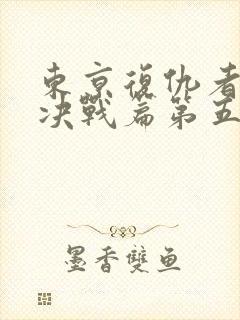 東京復仇者
决戰篇第五
墨香雙魚